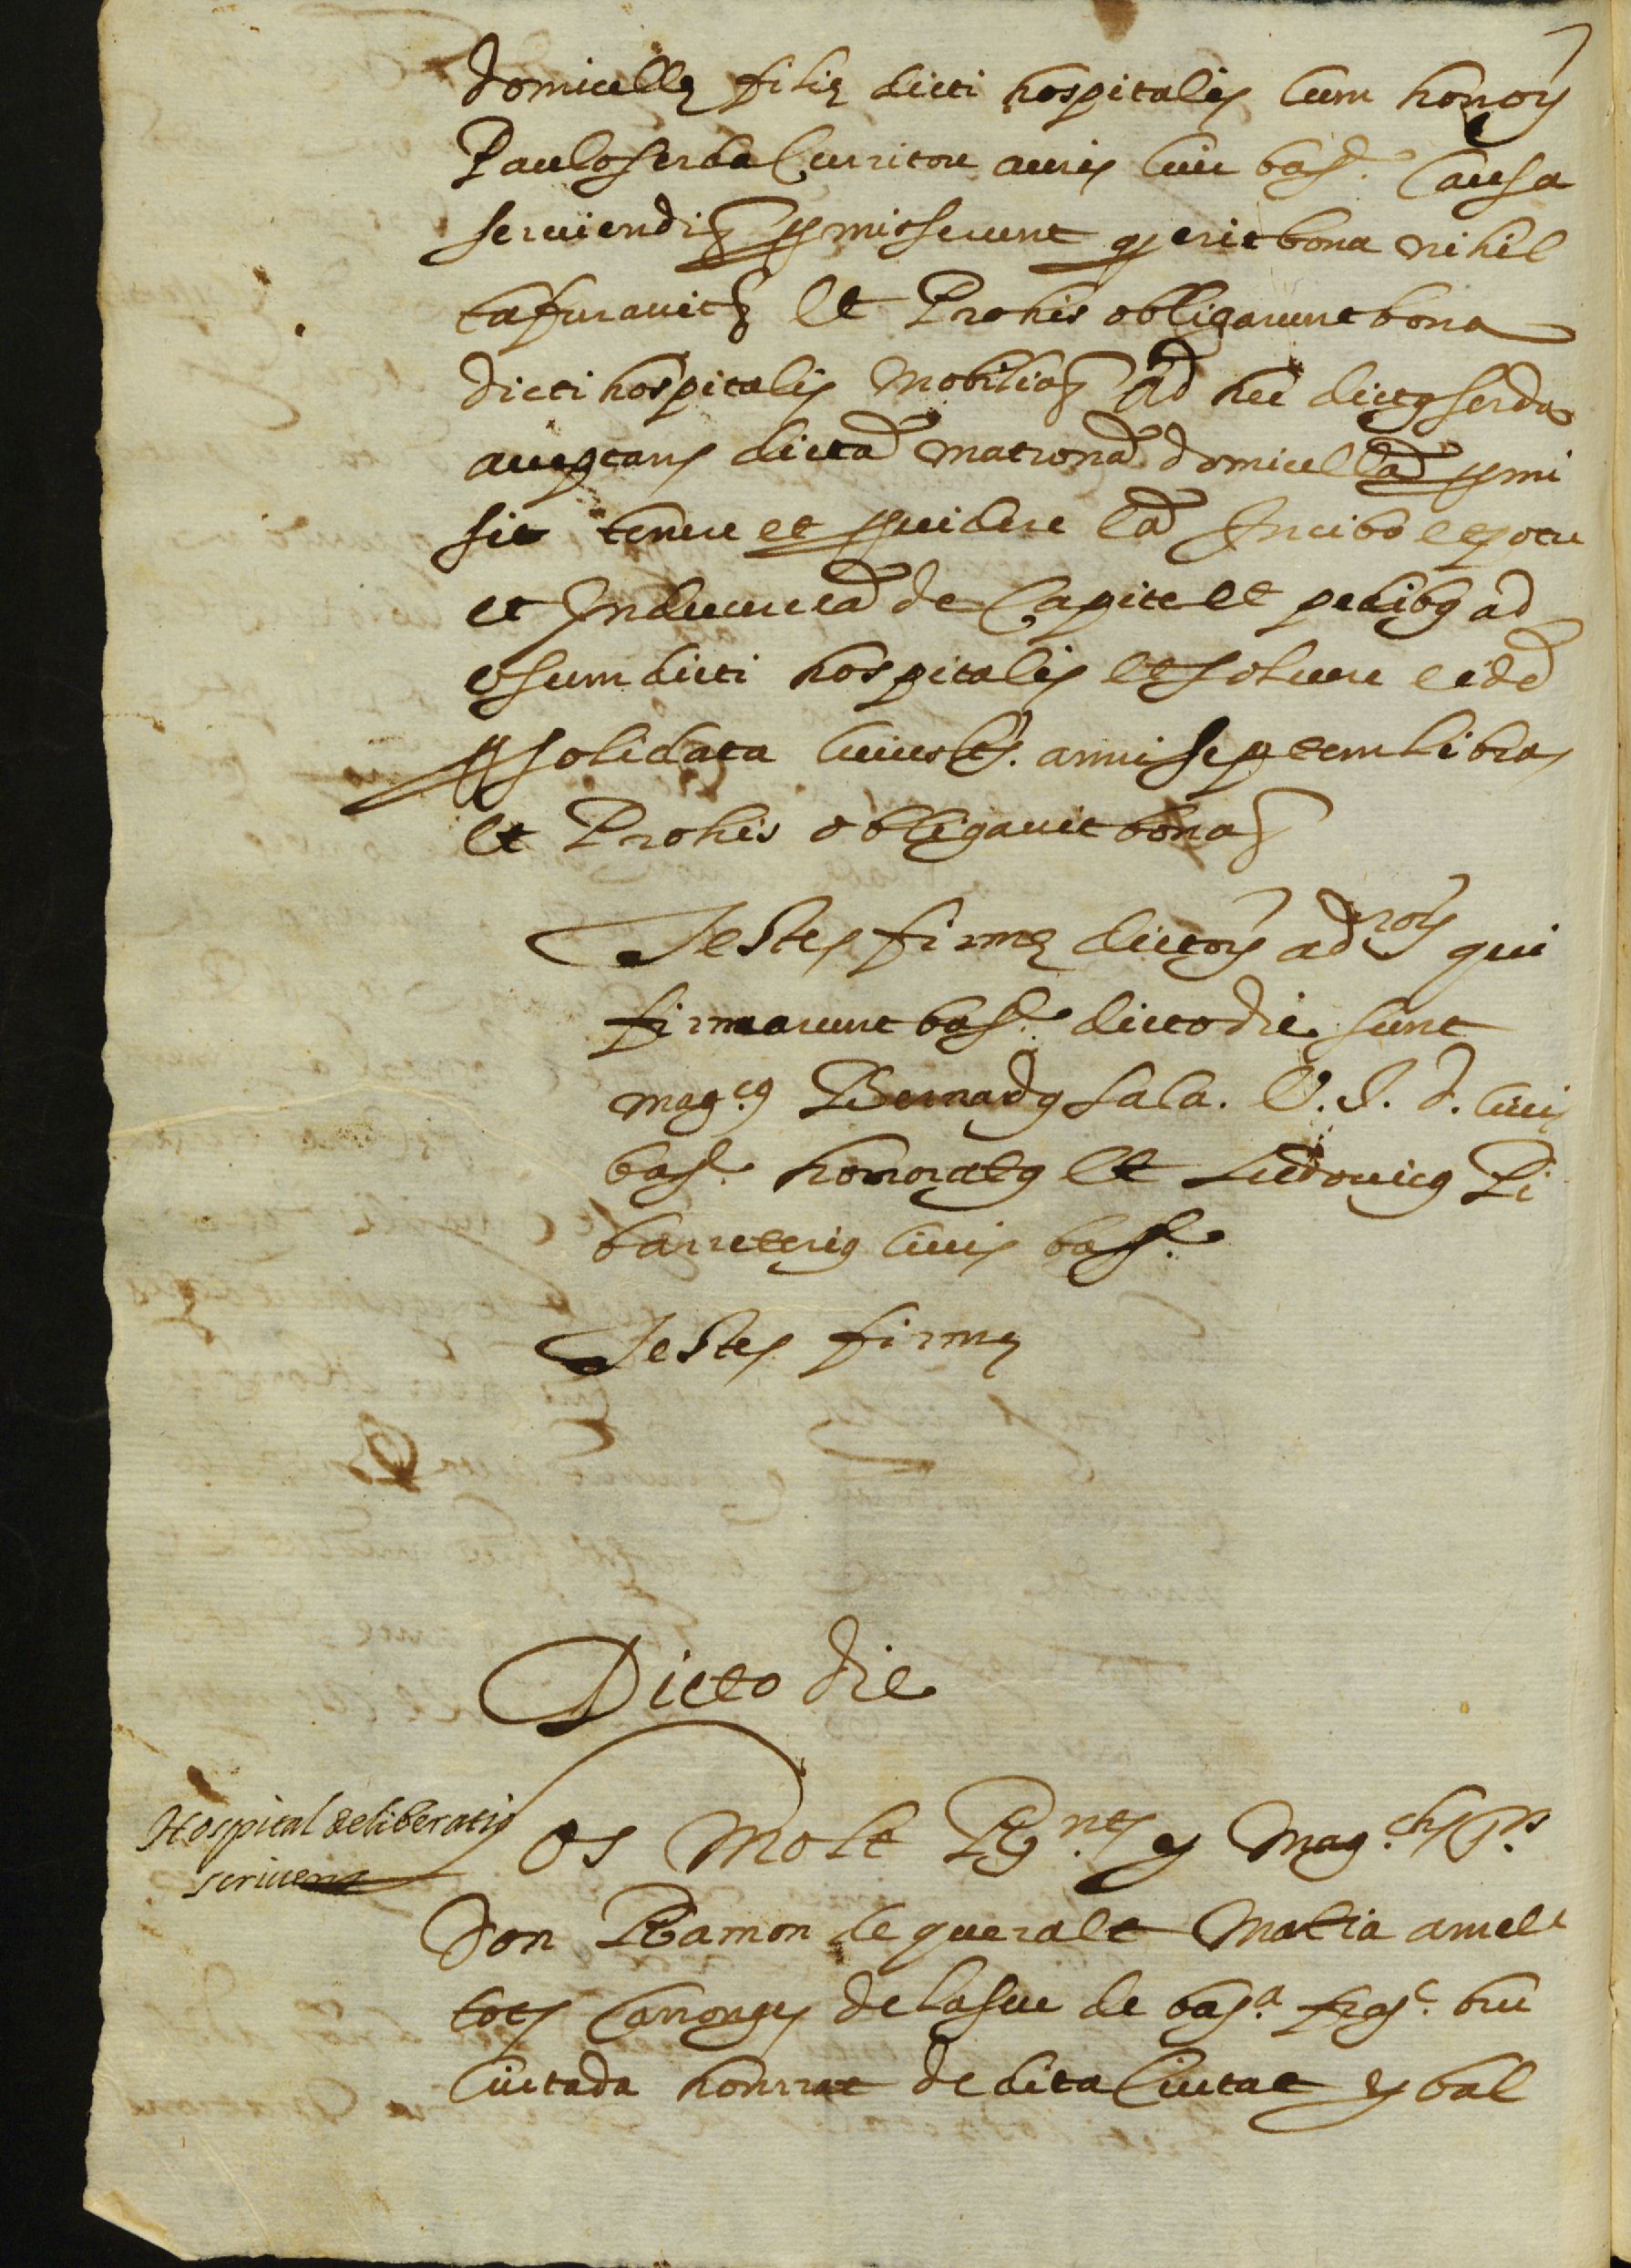 domicelle filie dicti hospitalis cum honor
Paulo serda Curritore auris cive bar.e Causa
serviendi promisserunt q erit bona nihil
tafuravit Et Pro his obligarunt bona
dicti hospitalis Mobilia Ad hec dictus serda
acceptans dictam matronam domicellam promi
sit tenere et providere eam In cibo et potu
et Induere eam de Capite et pedibus ad
usum dicti hospitalis et solvere eidem
pro solidata cuiuslt. anni septem libras
et Pro his obligavit bona
Testes firme dictor ad.ror qui
firmarunt bar.e dicto die sunt
mag.cus Bernadus sala. U. J. d. civis
bar.e honoratus Et Ludovicus Pi
barreterius civis bar.e
Testes firme
Dicto die
Hospital deliberatio
scrivent
Los Molt R.nts y Mag.chs S.rs
Don Ramon de queralt Matia amell
tots Canonges de la seu de bar.a fra.c bru
Ciutada honrrat de dita Ciutat y bal